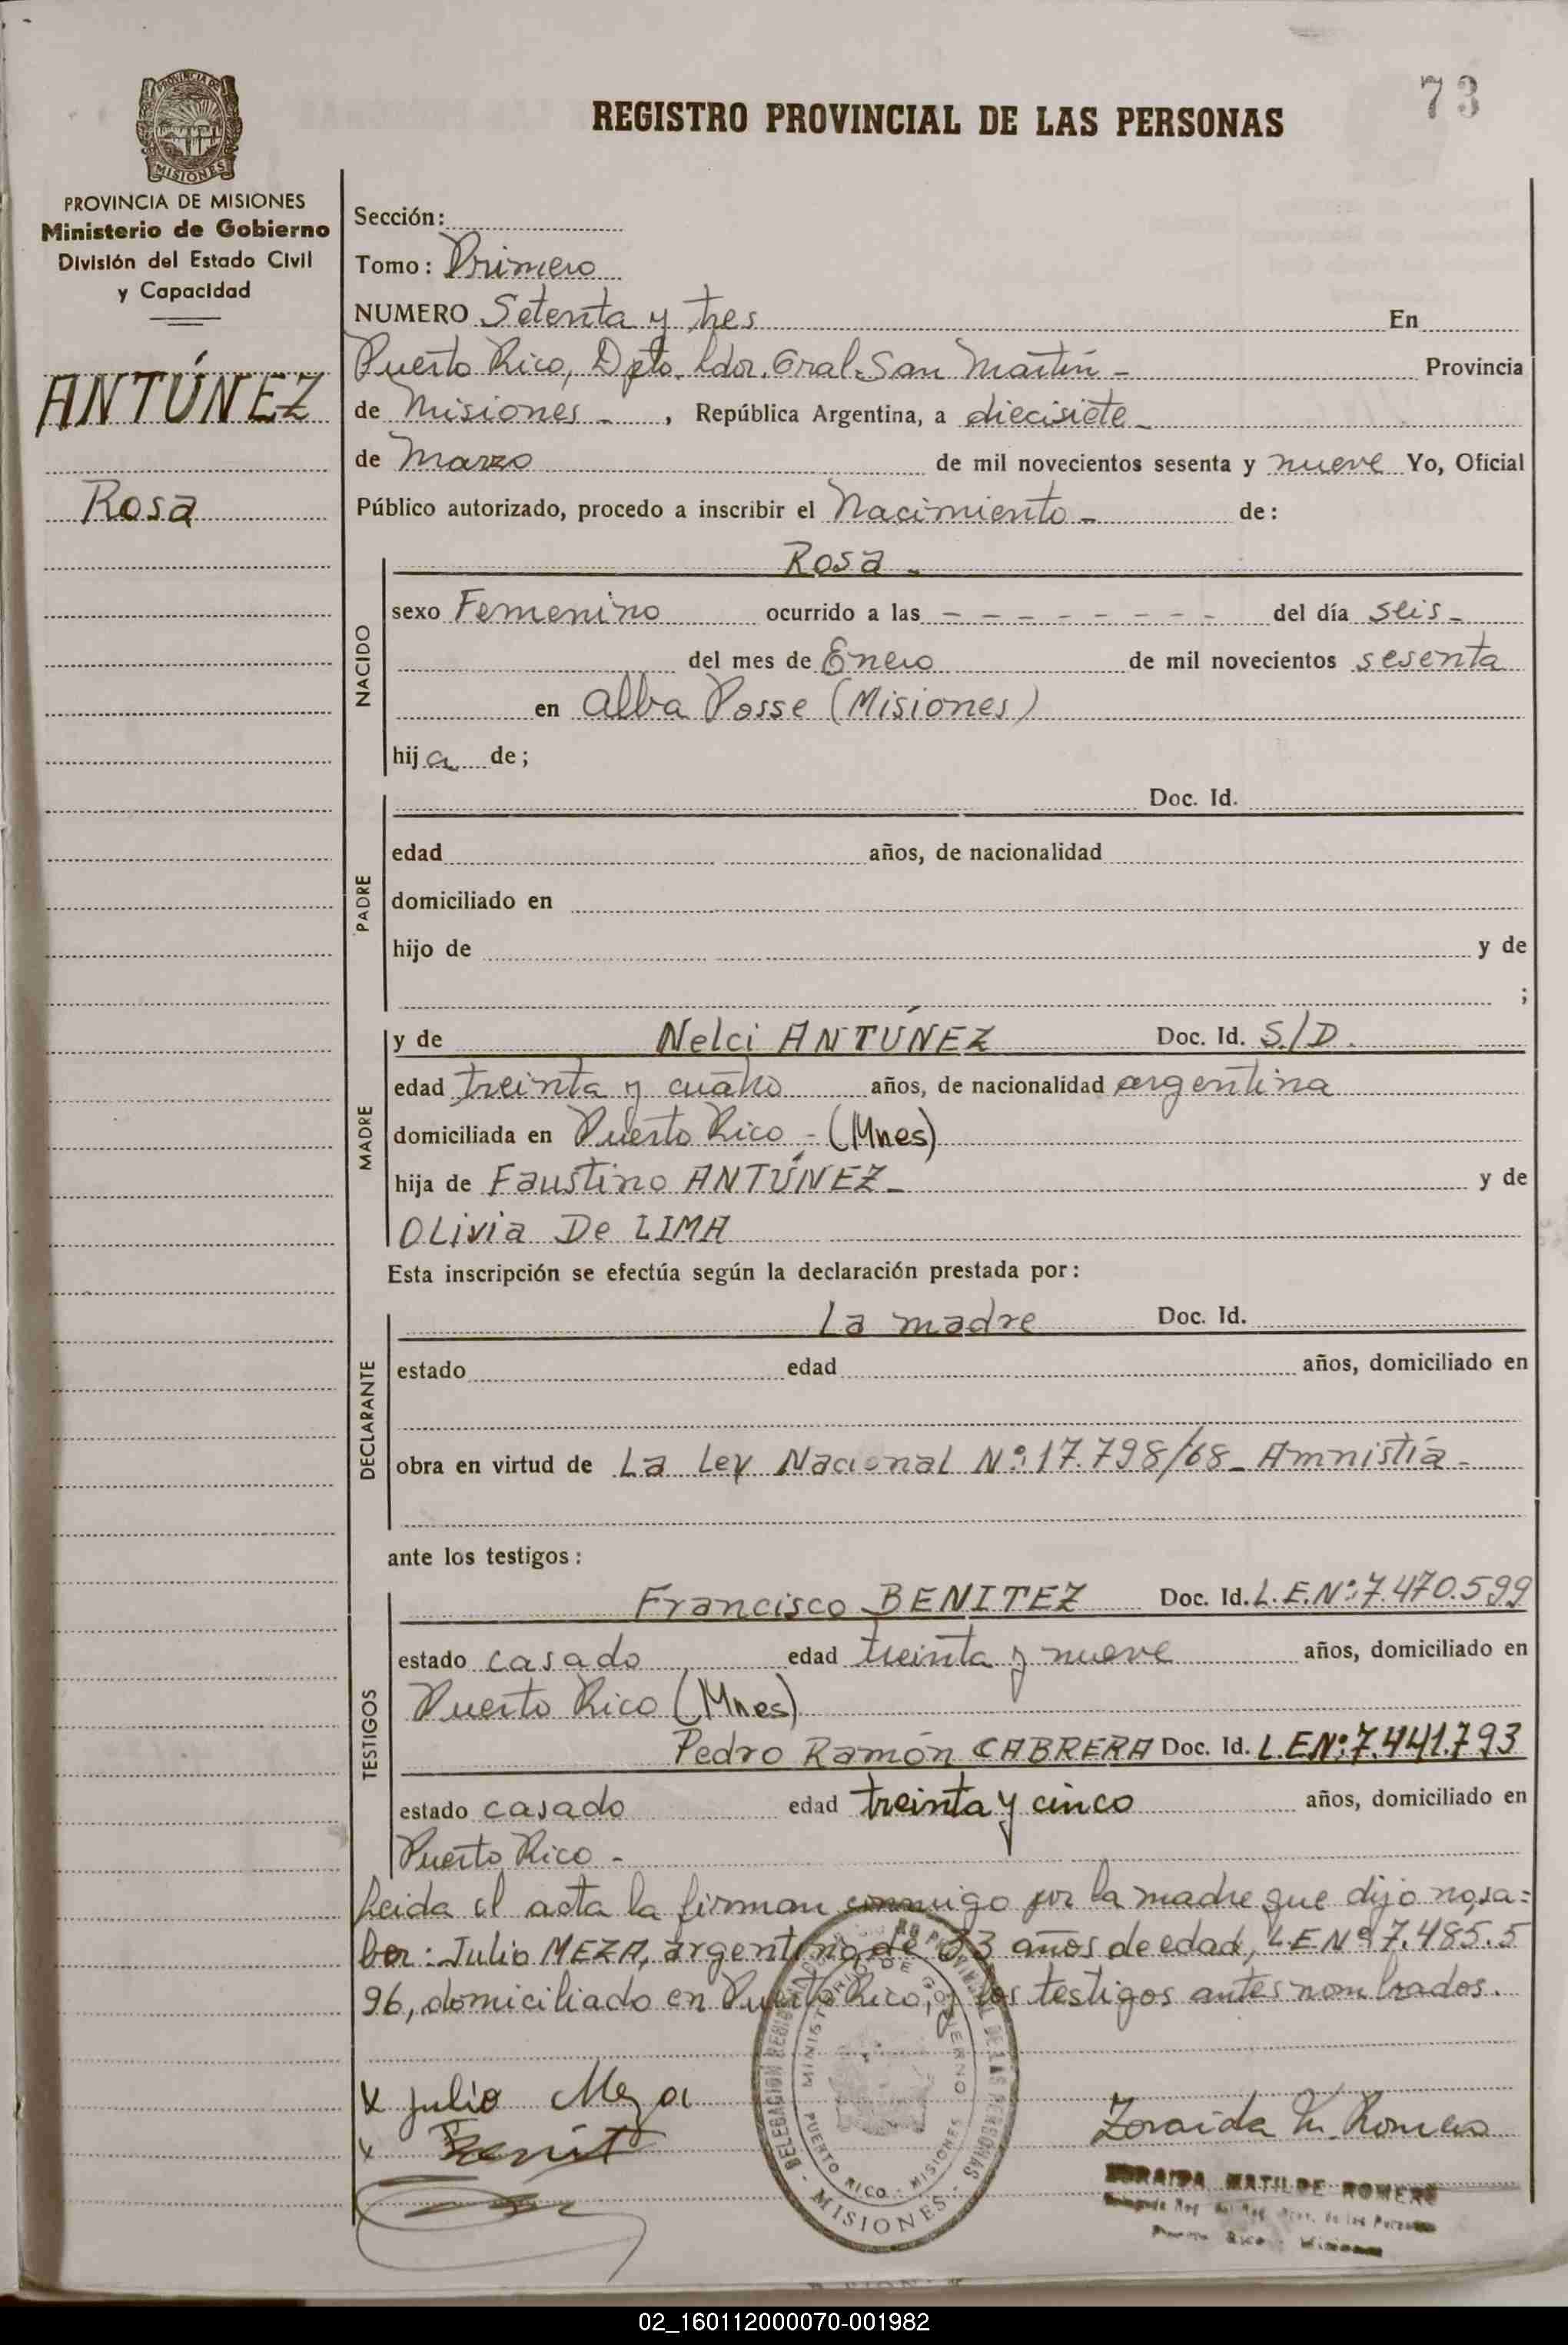 73
REGISTRO PROVINCIAL DE LAS PERSONAS
PROVINCIA DE MISIONES
Ministerio de Gobierno
División del Estado Civil
y Capacidad
ANTÚNEZ
Rosa
Sección:
Tomo: Primero
NUMERO Setenta y tres En
Puerto Rico, Dpto. Ldor. Gral. San Martín - Provincia
de Misiones - , República Argentina, a diecisiete -
de Marzo de mil novecientos sesenta y nueve Yo, Oficial
Público autorizado, procedo a inscribir el Nacimiento - de:
NACIDO
Rosa -
sexo Femenino ocurrido a las - - - - - - - - del día seis -
del mes de Enero de mil novecientos sesenta
en Alba Posse (Misiones)
hija de;
PADRE
Doc. Id.
edad años, de nacionalidad
domiciliado en
hijo de y de
;
MADRE
y de Nelci ANTÚNEZ Doc. Id. S/D.
edad treinta y cuatro años, de nacionalidad argentina
domiciliada en Puerto Rico - (Mnes)
hija de Faustino ANTÚNEZ - y de
OLivia De LIMA
Esta inscripción se efectúa según la declaración prestada por:
DECLARANTE
La madre Doc. Id.
estado edad años, domiciliado en
obra en virtud de La Ley Nacional Nº: 17.798/68 - Amnistía -
ante los testigos:
TESTIGOS
Francisco BENITEZ Doc. Id. L.E.Nº: 7.470.599
estado casado edad treinta y nueve años, domiciliado en
Puerto Rico (Mnes)
Pedro Ramón CABRERA Doc. Id. L.E Nº: 7.441.793
estado casado edad treinta y cinco años, domiciliado en
Puerto Rico -
Leida el acta la firman conmigo por la madre que dijo no sa=
ber: Julio MEZA, argentino de 33 años de edad, L.E Nº 7.485.5
96, domiciliado en Puerto Rico, y los testigos antes nombrados.
x Julio Meza
x Benit
Zoraida M. Romero
ZORAIDA MATILDE ROMERO
MINISTERIO DE GOBIERNO
PUERTO RICO - MISIONES
- MISIONES -
02_160112000070-001982